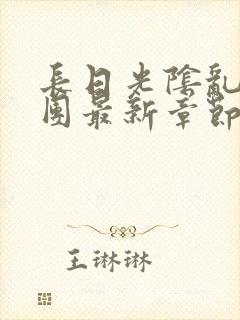 長日光陰亂
團最新章節
王琳琳